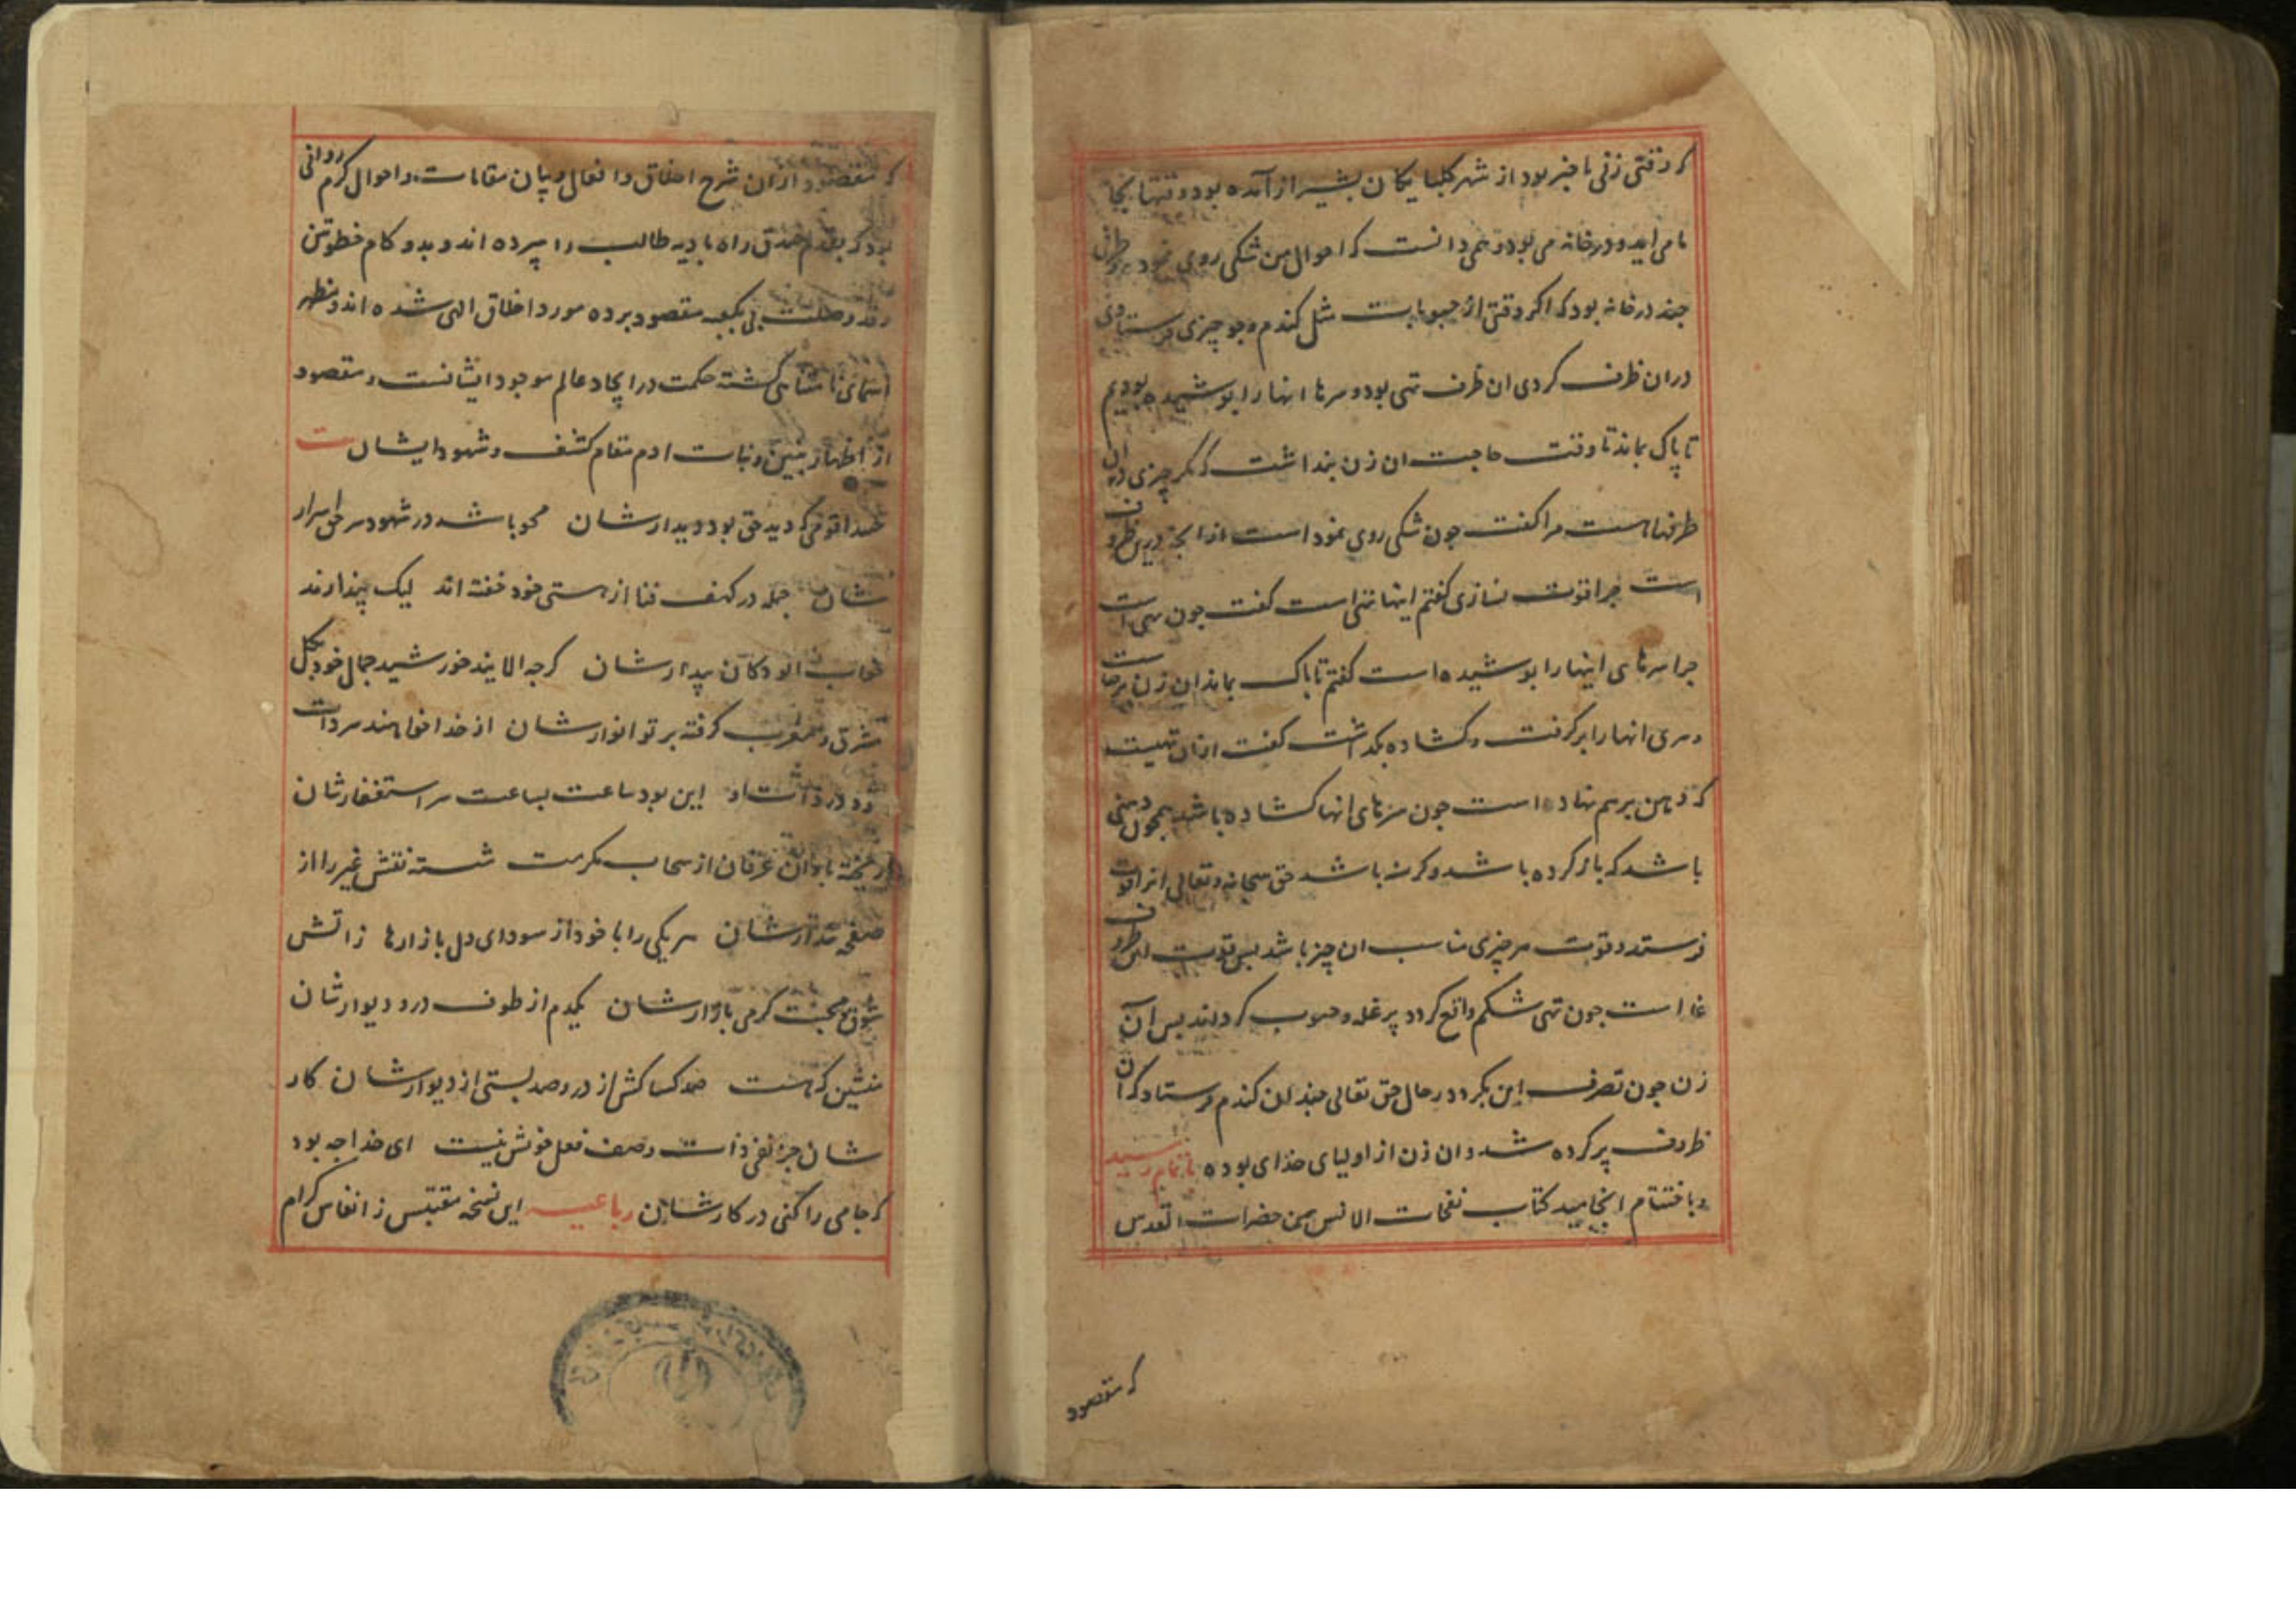 که وقتی زنی با خبر بود از شهر کلپایکان بشیراز آمده بود و قتها بخا
ما می امد و در خانه می بود و نمی دانست که احوال من شکی روی نمود و ظرفی
چند در خانه بود که اکر وقتی از حبوبات مثل کندم و جو چیزی فرستادی
دران ظرف کردی ان ظرف تهی بود و سرها انها را پوشیده بودیم
تا پاک بماند تا وقت حاجت ان زن پنداشت که مکر چیزی دران
ظرفهاست مرا کفت چون شکی روی نمود است از انچه درین ظروف
است چرا قوت نسازی کفتم اینها تهی است کفت چون تهی است
چرا سرهای اینها را پوشیده است کفتم تا پاک بماند ان زن برخاست
و سری انها را بر کرفت و کشاده بکداشت کفت ازان تهیست
که دهن برهم نهاده است چون سرهای انها کشاده باشد همچون دهنی
باشد که باز کرده باشد و کرسنه باشد حق سبحانه و تعالی انرا قوت
فرستد و قوت هر چیزی مناسب ان چیز باشد پس قوت این ظروف
غله است چون تهی شکم واقع کردد پر غله و حبوب کردانند پس آن
زن چون تصرف این بکرد در حال حق تعالی چندان کندم فرستاد که آن
ظروف پر کرده شد و ان زن از اولیای خدای بوده باتمام رسید
و باختتام انجامید کتاب نفحات الانس من حضرات القدس
که مقصود
که مقصود ازان شرح اخلاق و افعال و بیان مقامات و احوال کرم روانی
بود که بقدم صدق راه بادیه طالب را سپرده اند و بدو کام خطوتین
وقد وصلت پی بکعبه مقصود برده مورد اخلاق الهی شده اند و مظهر
اسمای نامتناهی کشته حکمت در ایجاد عالم موجود ایشانست و مقصود
از اظهار بنین و بنات ادم مقام کشف و شهود ایشان ست
حبذا قومی که دید حق بود دیدارشان محو باشد در شهود سر حق اسرار
شان جمله در کهف فنا از هستی خود خفته اند لیک پندارند
خواب الودکان بیدارشان کرچه الایند خورشید جمال خود بکل
مشرق و مغرب کرفته پرتو انوارشان از خدا خواهند سردات
خود در ذات او این بود ساعت بساعت سر استغفارشان
ریخته باران عرفان از سحاب مکرمت شسته نقش غیر را از
صفحه پندارشان هر یکی را با خود از سودای دل بازارها ز اتش
شوق محبت کرمی بازارشان یکدم از طوف در و دیوارشان
منشین که هست صد کساکش از در و صد بستی از دیوارشان کار
شان جز نفی ذات و صف فعل خویش نیست ای خدا چه بود
که جامی را کنی در کارشان رباعیه این نسخه مقتبس ز انفاس کرام